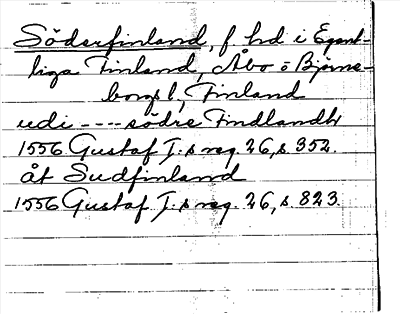 Söderfinland, f hd i Egent-
liga Finland, Åbo o Björne-
borgs l, Finland
udi ---- södre Findlandh
1556 Gustaf I:s reg. 26, s. 352.
åt Sudfinland
1556 Gustaf I:s reg. 26, s. 823.